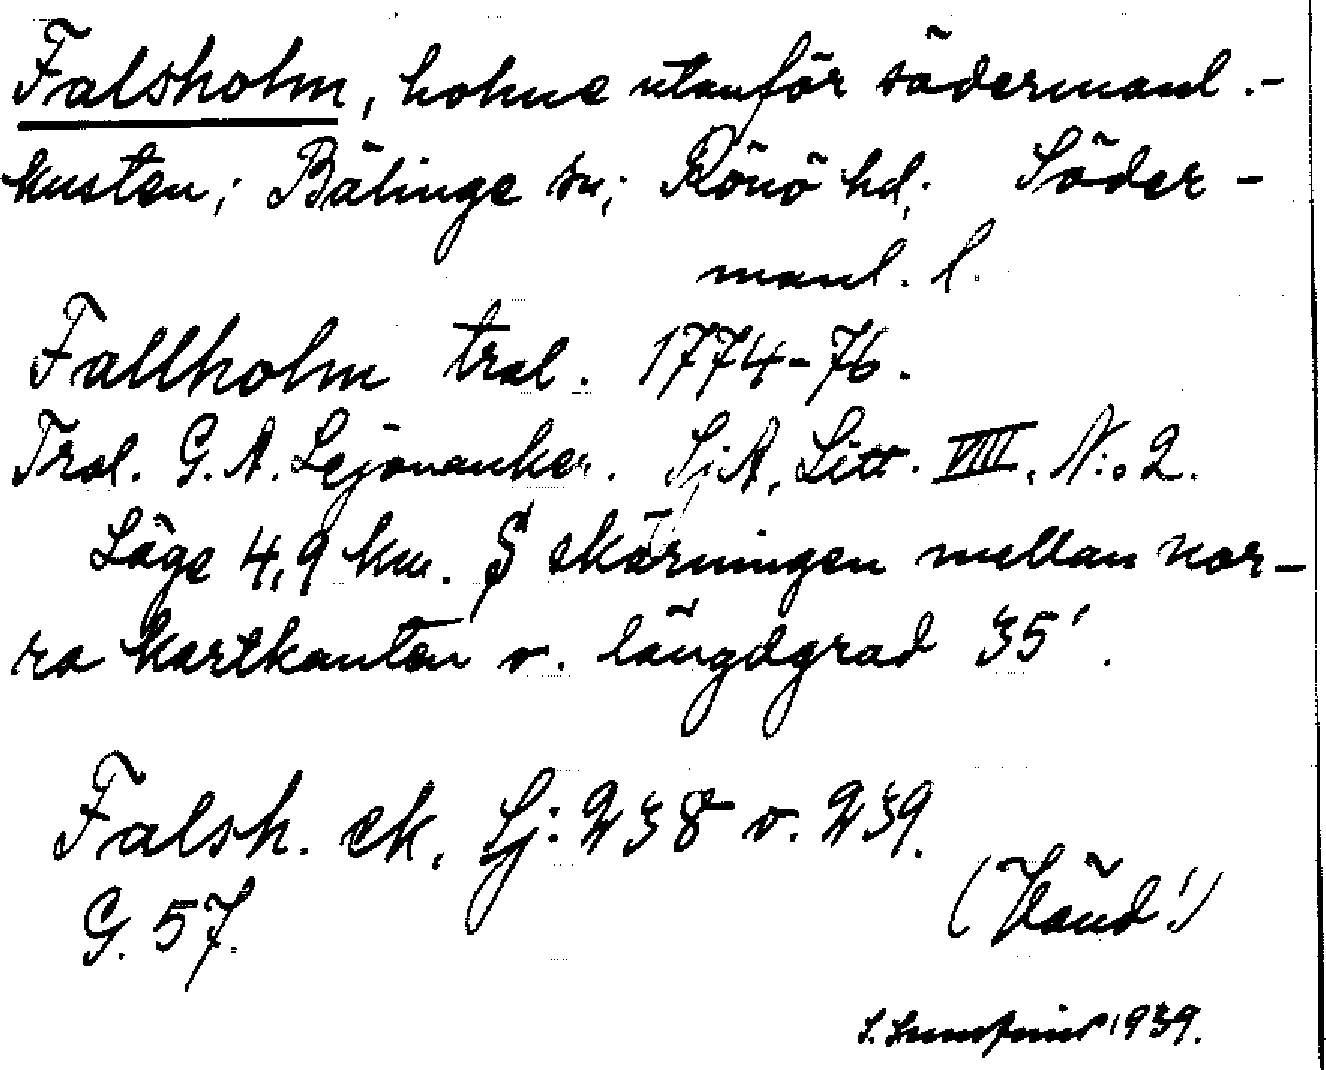 Falsholm, holme utanför södermanl.-
kusten; Bälinge sn; Rönö hd; Söder-
manl. l.
Fallholm trol. 1774-76.
Trol. G. A. Lejonanker. SjA, Litt. VIIII. N:o 2.
Läge 4,9 km. S skärningen mellan nor-
ra kartkanten o. längdgrad 35'.
Falsh. ek. Sj: 238 o. 239.
G. 57.
(Vänd!)
1939.